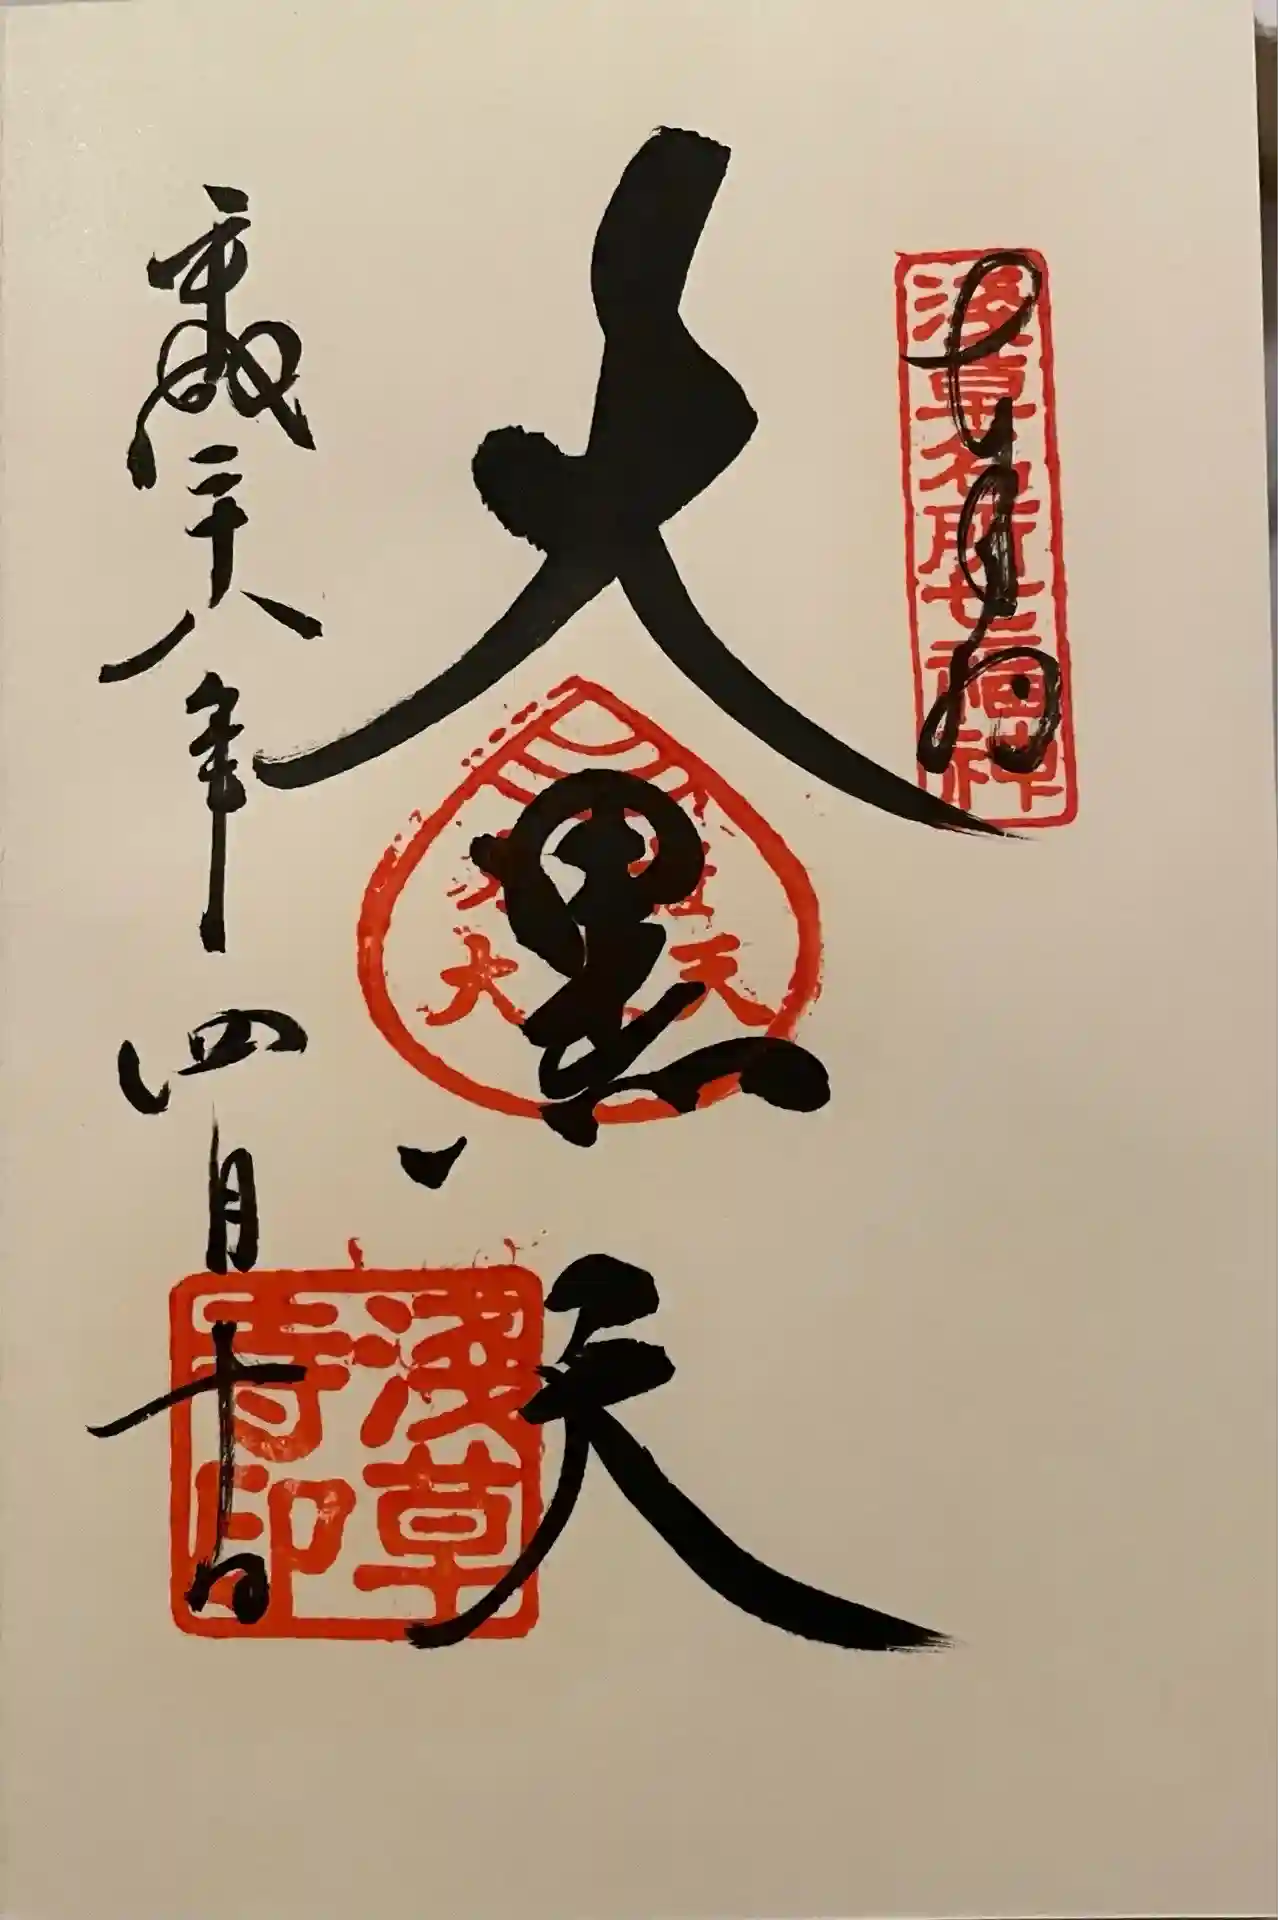 奉拝
浅草名所七福神
大黒天
大 天
平成二十八年四月十日
浅草
寺印